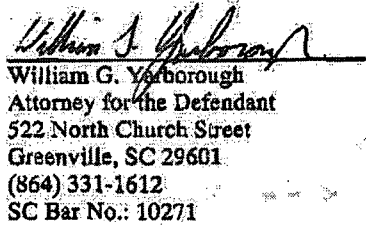 William G. Yarborough
William G. Yarborough
Attorney for the Defendant
522 North Church Street
Greenville, SC 29601
(864) 331-1612
SC Bar No.: 10271